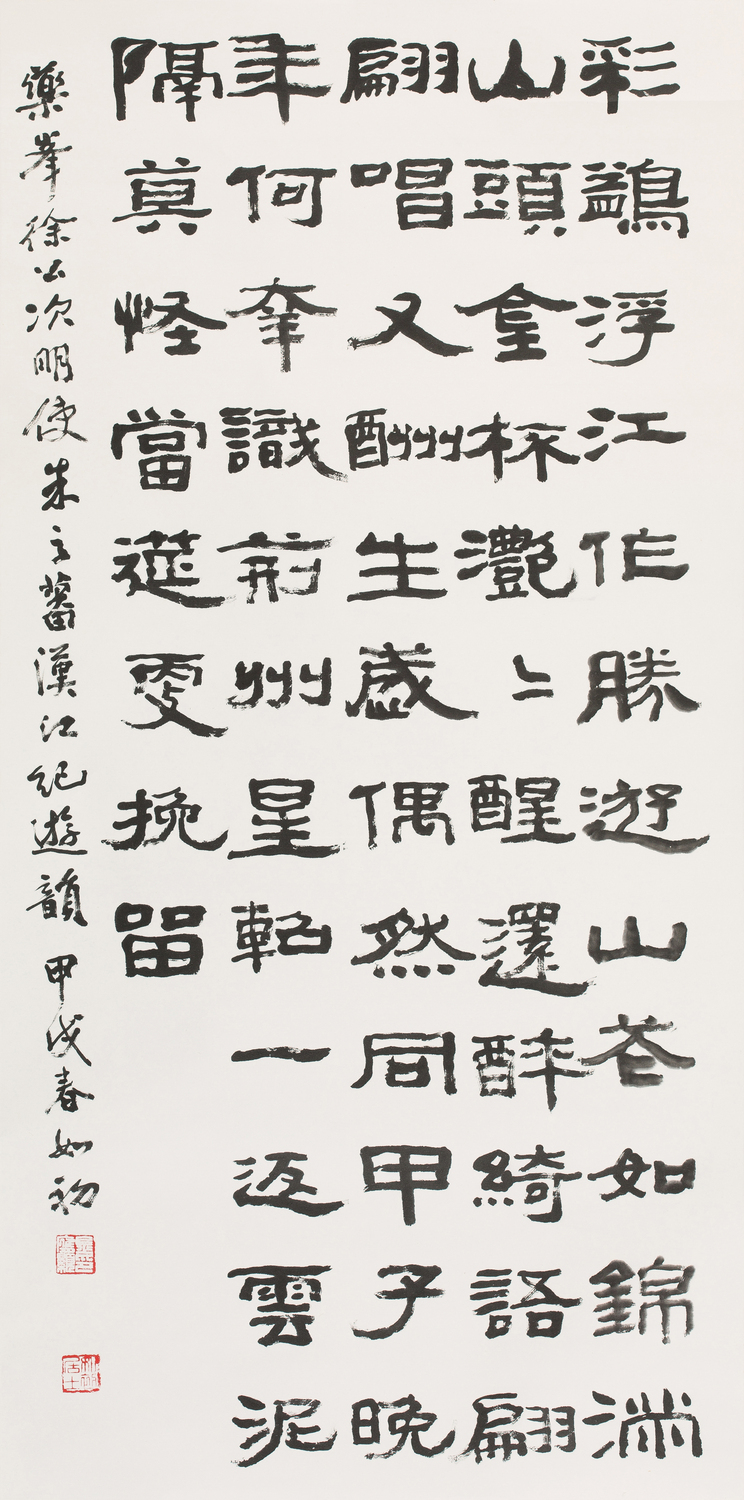 彩鷁浮江作勝遊山花如錦滿
山頭金杯灧〻醒還醉綺語翩
翩唱又酬生歲偶然同甲子晚
年何幸識荊州星軺一返雲泥
隔莫怪當筵更挽留
藥峯徐公次明使朱之蕃漢江紀遊韻 甲戌春如初